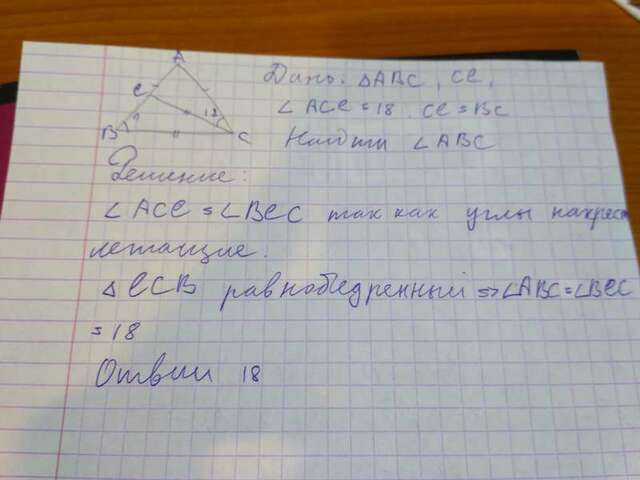 A
e
18
?
B
C
Дано: △ABC, Ce,
∠ACe = 18, Ce = BC
Найти ∠ABC
Решение:
∠ACe = ∠BeC так как углы накрест
лежащие.
△eCB равнобедренный => ∠ABC = ∠BeC
= 18
Ответ 18